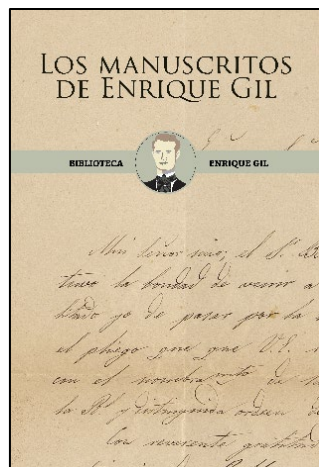 LOS MANUSCRITOS
DE ENRIQUE GIL
BIBLIOTECA ENRIQUE GIL
Mui Señor mio; el Sr. 
tuvo la bondad de venir a
yo de pasar por la
el pliego que que V.E.
con el nombramto de
la Rl y distinguida orden de
Con reverente gratitud